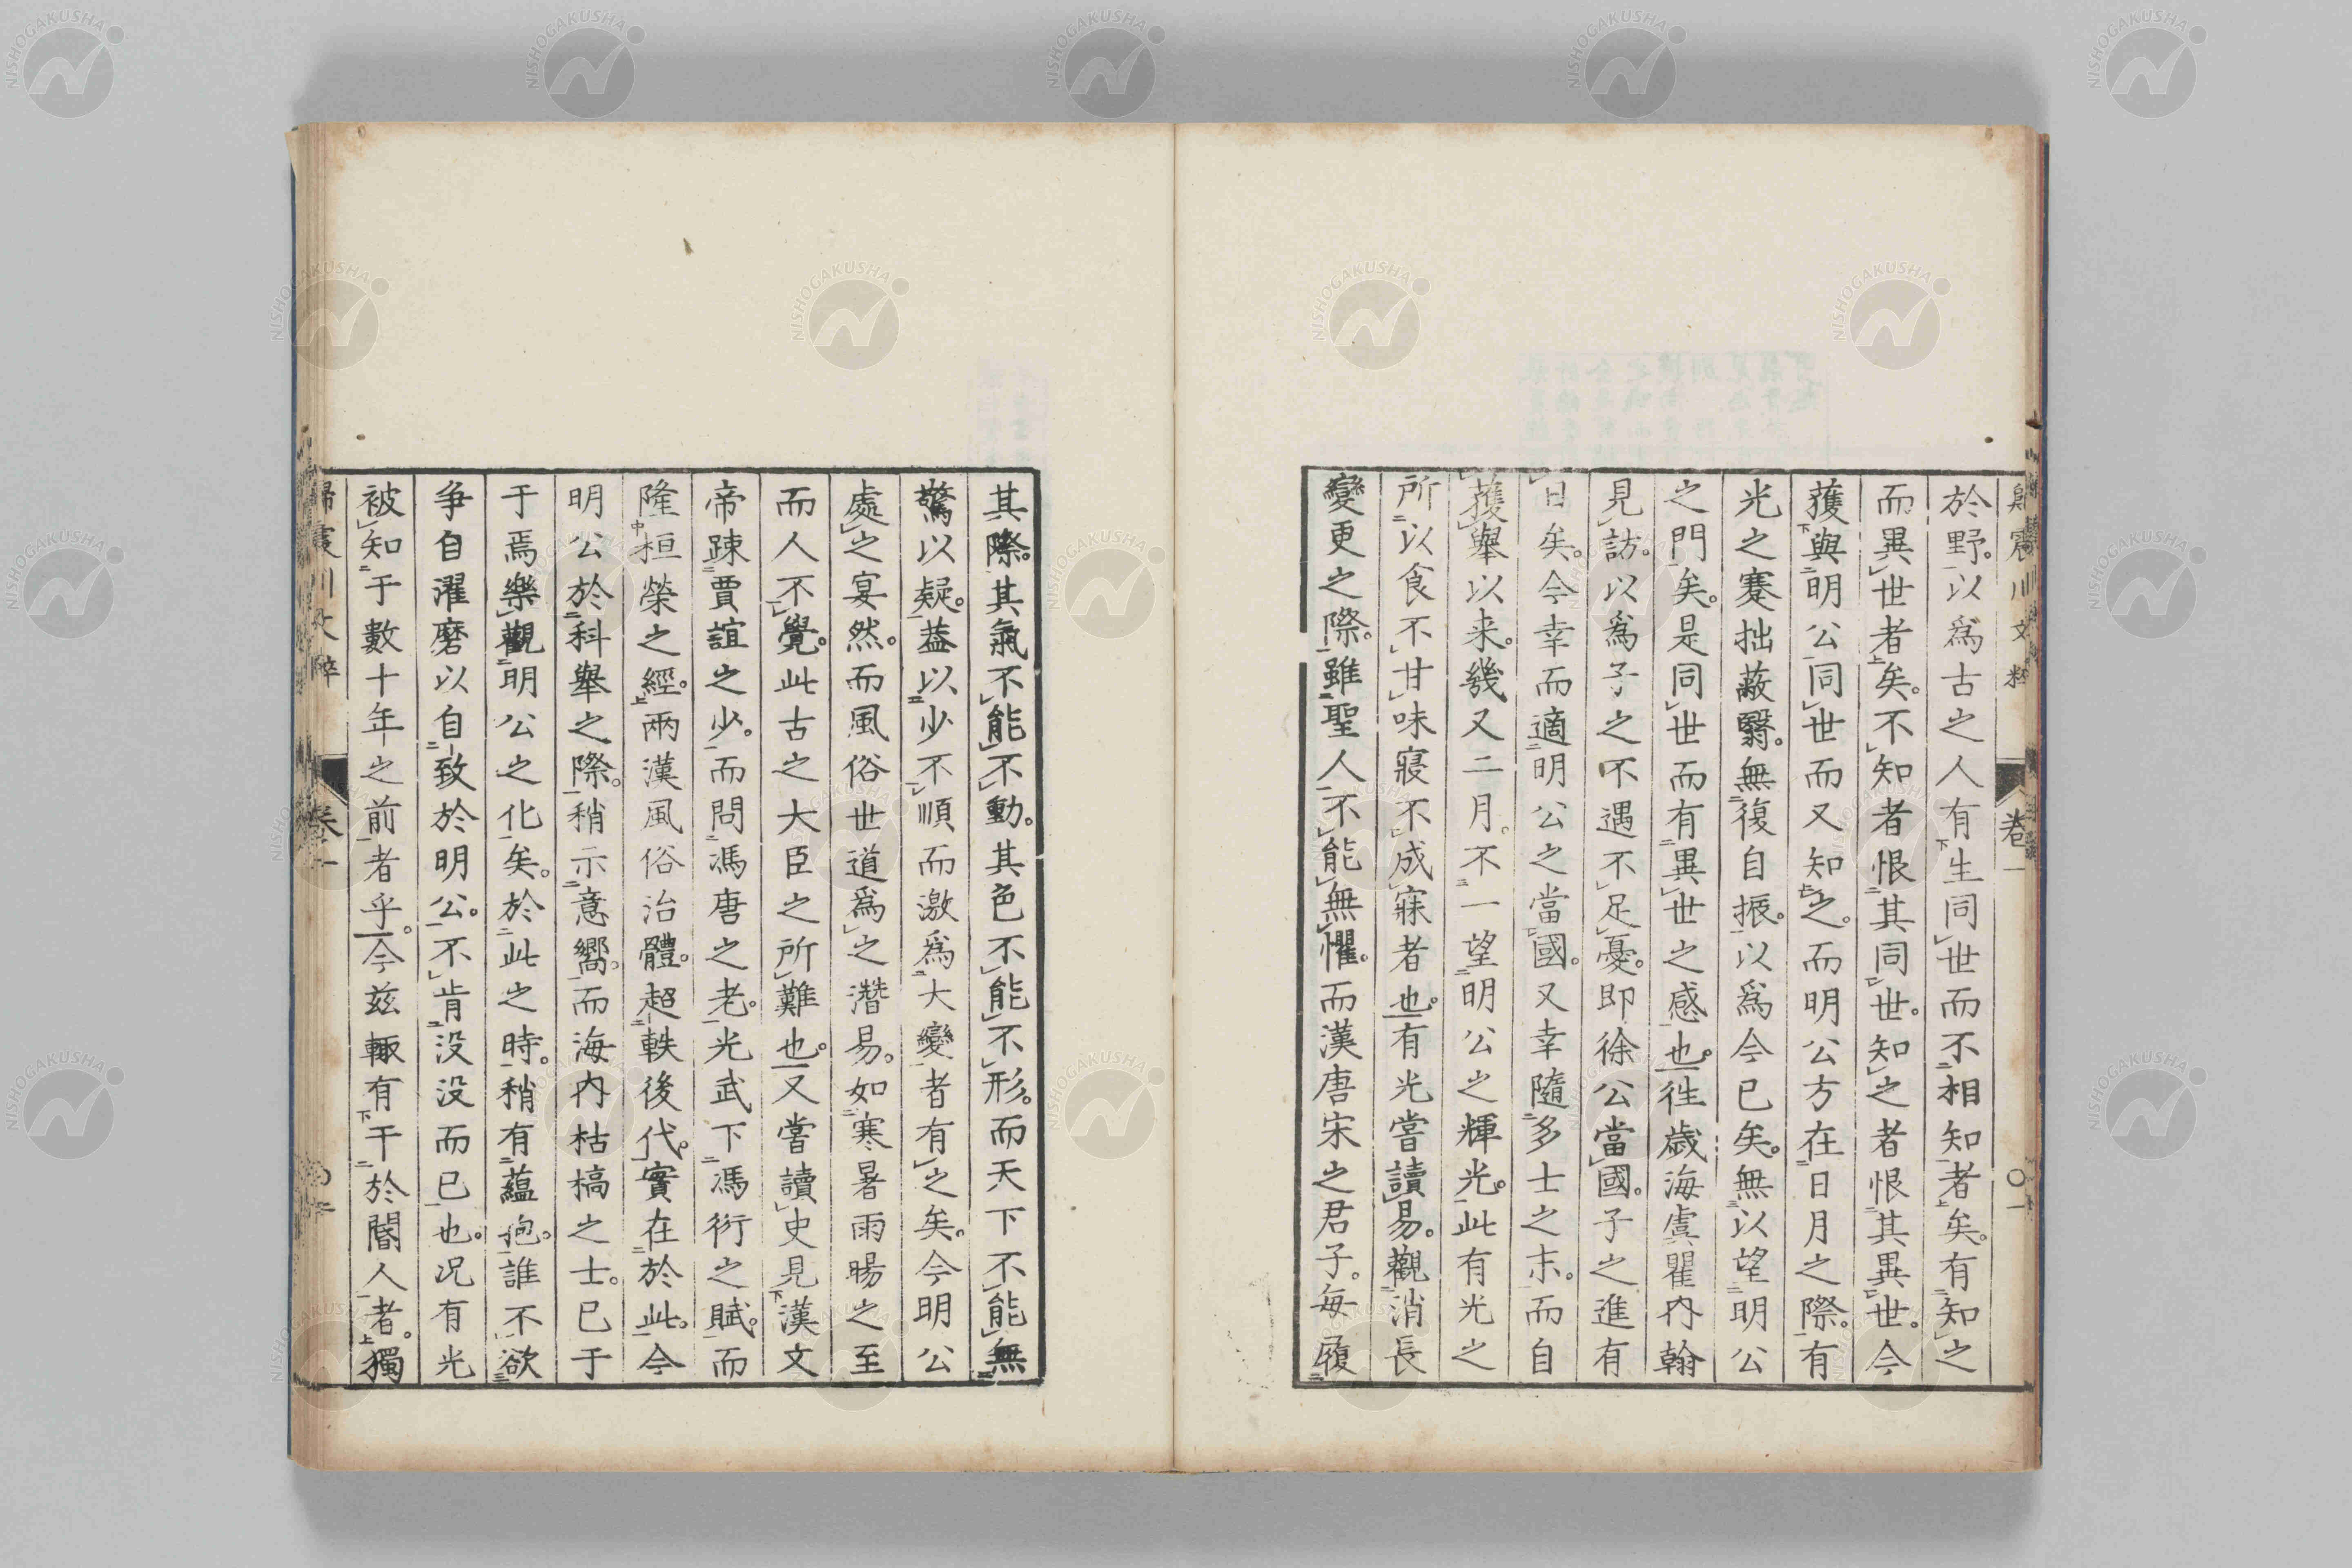 歸震川文粹 卷一 〇一
於野。以爲古之人有生同世而不相知者矣。有知之
而異世者矣。不知者恨其同世。知之者恨其異世。今
蒦與明公同世而又知之。而明公方在日月之際。有
光之蹇拙蔽翳。無復自振。以爲今已矣。無以望明公
之門矣。是同世而有異世之感也。徃歳海虞瞿内翰
見訪。以爲子之不遇不足憂。即徐公當國。子之進有
日矣。今幸而適明公之當國。又幸隨多士之末。而自
蒦舉以来。幾又二月。不一望明公之輝光。此有光之
所以食不甘味寢不成寐者也。有光嘗讀易。觀消長
變更之際。雖聖人不能無懼。而漢唐宋之君子。每履
其際。其氣不能不動。其色不能不形。而天下不能無
驚以疑。葢以少不順而激爲大變者有之矣。今明公
處之宴然。而風俗世道爲之潛易。如寒暑雨暘之至
而人不覺。此古之大臣之所難也。又嘗讀史見漢文
帝踈賈誼之少。而問馮唐之老。光武下馮衍之賦。而
隆桓榮之經。兩漢風俗治體。超軼後代。實在於此。今
明公於科舉之際。稍示意嚮。而海内枯槁之士。已于
于焉樂觀明公之化矣。於此之時。稍有蘊抱。誰不欲
爭自濯磨以自致於明公。不肯没没而已也。况有光
被知于數十年之前者乎。今茲輙有干於閽人者。獨
歸震川文粹 卷一
NISHOGAKUSHA